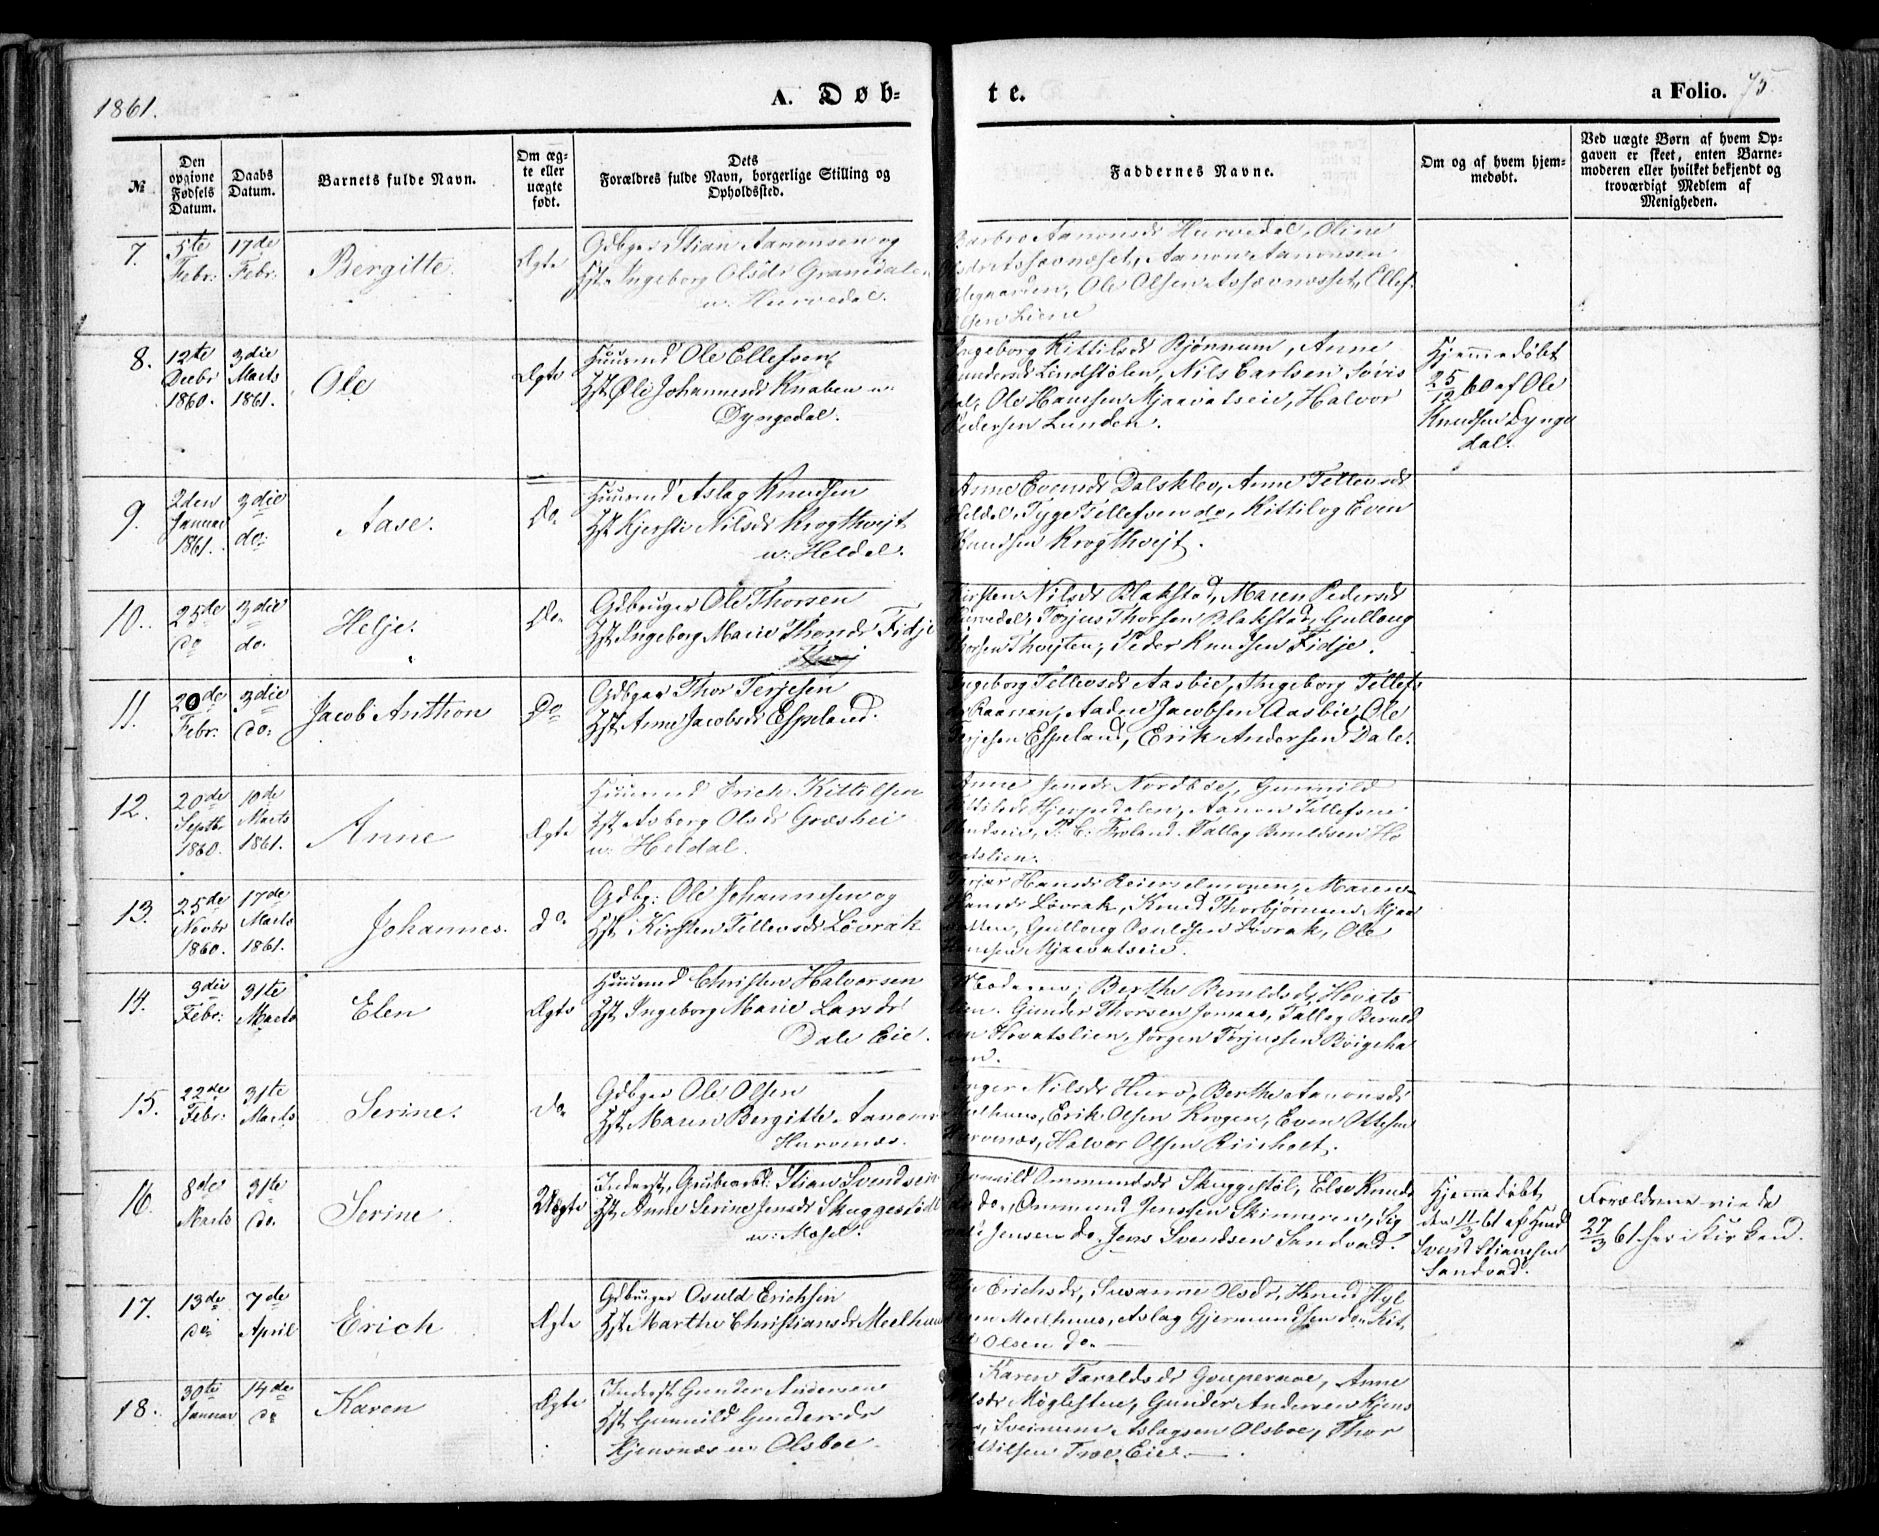 1861.
A. Døb=
te.
a Folio. 75
№
Den opgivne Fødsels Datum.
Daabs Datum.
Barnets fulde Navn.
Om ægte eller uægte født.
Dets Forældres fulde Navn, borgerlige Stilling og Opholdssted.
Faddernes Navne.
Om og af hvem hjemmedøbt.
Ved uægte Børn af hvem Opgaven er skeet, enten Barnemoderen eller hvilket bekjendt og troværdigt Medlem af Menigheden.
7. 5te Febr: 17de Febr: Bergitte. Ægte
Gdbger Stian Aanonsen og
Hst. Ingeborg Olsdr Granedalen
u. Hurvedal.
Barbro Aanonsdr Hurvedal, Oline
Aanon Aanonsen
Ole Olsen Ellef
8. 12te Decbr 1860. 3die Marts 1861. Ole Ægte
Huusmd Ole Ellefsen
Hst. Øli Johannesdr Knaben u:
Dyngedal.
Ingeborg Kittilsdr Bjønnum, Anne
Gundersdr Lindstølen, Nils Carlsen
Ole Hansen Mjaavatseie, Halvor
Pedersen Lunden.
Hjemmedøbt
25/12 60 af Ole
Knudsen Dynge
dal.
9. 2den Januar 1861. 3die do: Aase. Do
Huusmd Aslag Knudsen
Hst. Kjersti Nilsdr Krogthvejt
u: Heldal.
Anne Evensdr Dalsklev, Anne Tellevsdr
Heldal, Tyge Tellefsen do, Kittil og Even
Knudsen Krogthvejt.
10. 25de do 3die do. Helje. Do
Gdbruger Ole Thorsen
Hst. Ingeborg Marie Thorsdr Fidje
Kirsten Nilsdr Blakstad, Maren Pedersdr
Hurvedal, Torjus Thorsen Blakstad, Gulloug
Thorsen Thvejten, Peder Knudsen Fidje.
11. 20de Febr. 3die do: Jacob Anthon Do
Gdbger Thor Terjesen
Hst. Anne Jacobsdr Espeland.
Ingeborg Tellevsdr Aasbie, Ingeborg Tellefs
Aadne Jacobsen Aasbie, Ole
Terjesen Espeland, Erik Andersen Dale.
12. 20de Septbr 1860. 10de Marts 1861. Anne Ægte
Huusmd Erich Kittilsen
Hst. Asborg Olsdr Græshei
u: Heldal.
Anne Jensdr Nordbøe, Gunnild
Aanon Tellefsen
Froland. Tallag Beruldsen Ho
vatslien.
13. 25de Novbr 1860. 17de Marts 1861. Johannes. do
Gdbr: Ole Johannesen og
Hst. Kirsten Tellevsdr Løvrak
Tarjer Hansdr Reierselmonen, Maren
Hansdr Løvrak, Knud Thorbjørnsen Mjaa
vatten, Gulloug Osuldsen Løvrak, Ole
Hansen Mjaavatseie.
14. 3die Febr: 31te Marts Elen Ægte
Huusmd Christen Halvorsen
Hst. Ingeborg Marie Larsdr
Dale Eie.
Moderen, Berthe Beruldsdr Hovats
lien. Gunder Thorsen Jomaas, Tallag Beruld
sen Hovatslien, Jørgen Torjussen
15. 22de Febr: 31te Marts Serine. Do
Gdbger Ole Olsen
Hst. Maren Bergitte Aanons
Hurvenæs.
Inger Nilsdr Hurv, Berthe Aanonsdr
Meelhuus, Erik Olsen Krogen, Even Ottesen
Hurvenæs, Halvor Olsen Riisholt.
16. 8de Marts 31te do Serine Uægte
Inderst, Grubearb. Stian Svendsen
Hst. Anne Serine Jensdr Skuggestødl
u: Mosel.
Gunnild Ommundsdr Skuggestøl, Else Knuds
dr do, Ommund Jenssen Skinneren,
Jensen do, Jens Svendsen Sandvad.
Hjemmedøbt
den 11/3 61 af Huusmd
Svend Stiansen
Sandvad.
Forældrene viede
27/3 61 her i Kirken.
17. 13de do: 7de April Erich Ægte
Gdbruger Osuld Erichsen
Hst. Marthe Christiansdr Meelhuus
Erichsdr, Susanne Olsdr, Knud
Meelhuus, Aslag Gjermundsen do, Kit
Olsen do.
18. 30te Januar 14de do Karen Ægte
Inderst Gunder Andersen
Hst. Gunnild Gundersdr
Kjensnæs u Olsboe
Karen Taraldsdr Anne
Møglestue, Gunder Andersen Kjens
Sveinum Aslagsen Olsboe, Thor
Kittilsen Troe Eie.